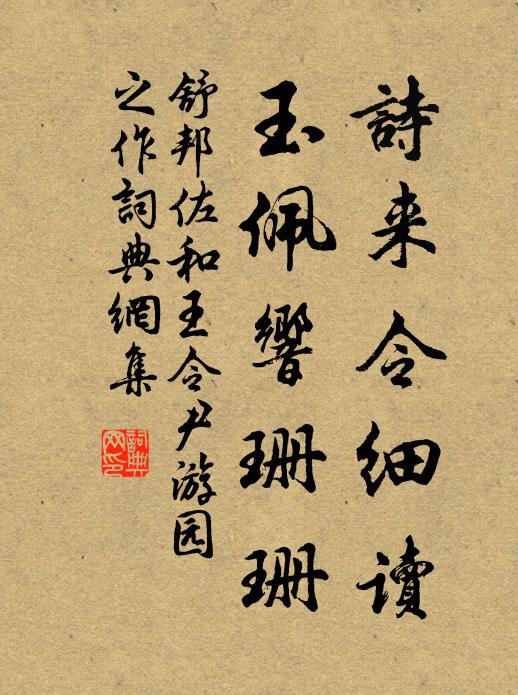 詩来令細讀
玉佩響珊珊
舒邦佐和王令尹游园
之作詞典網集
詞典网印